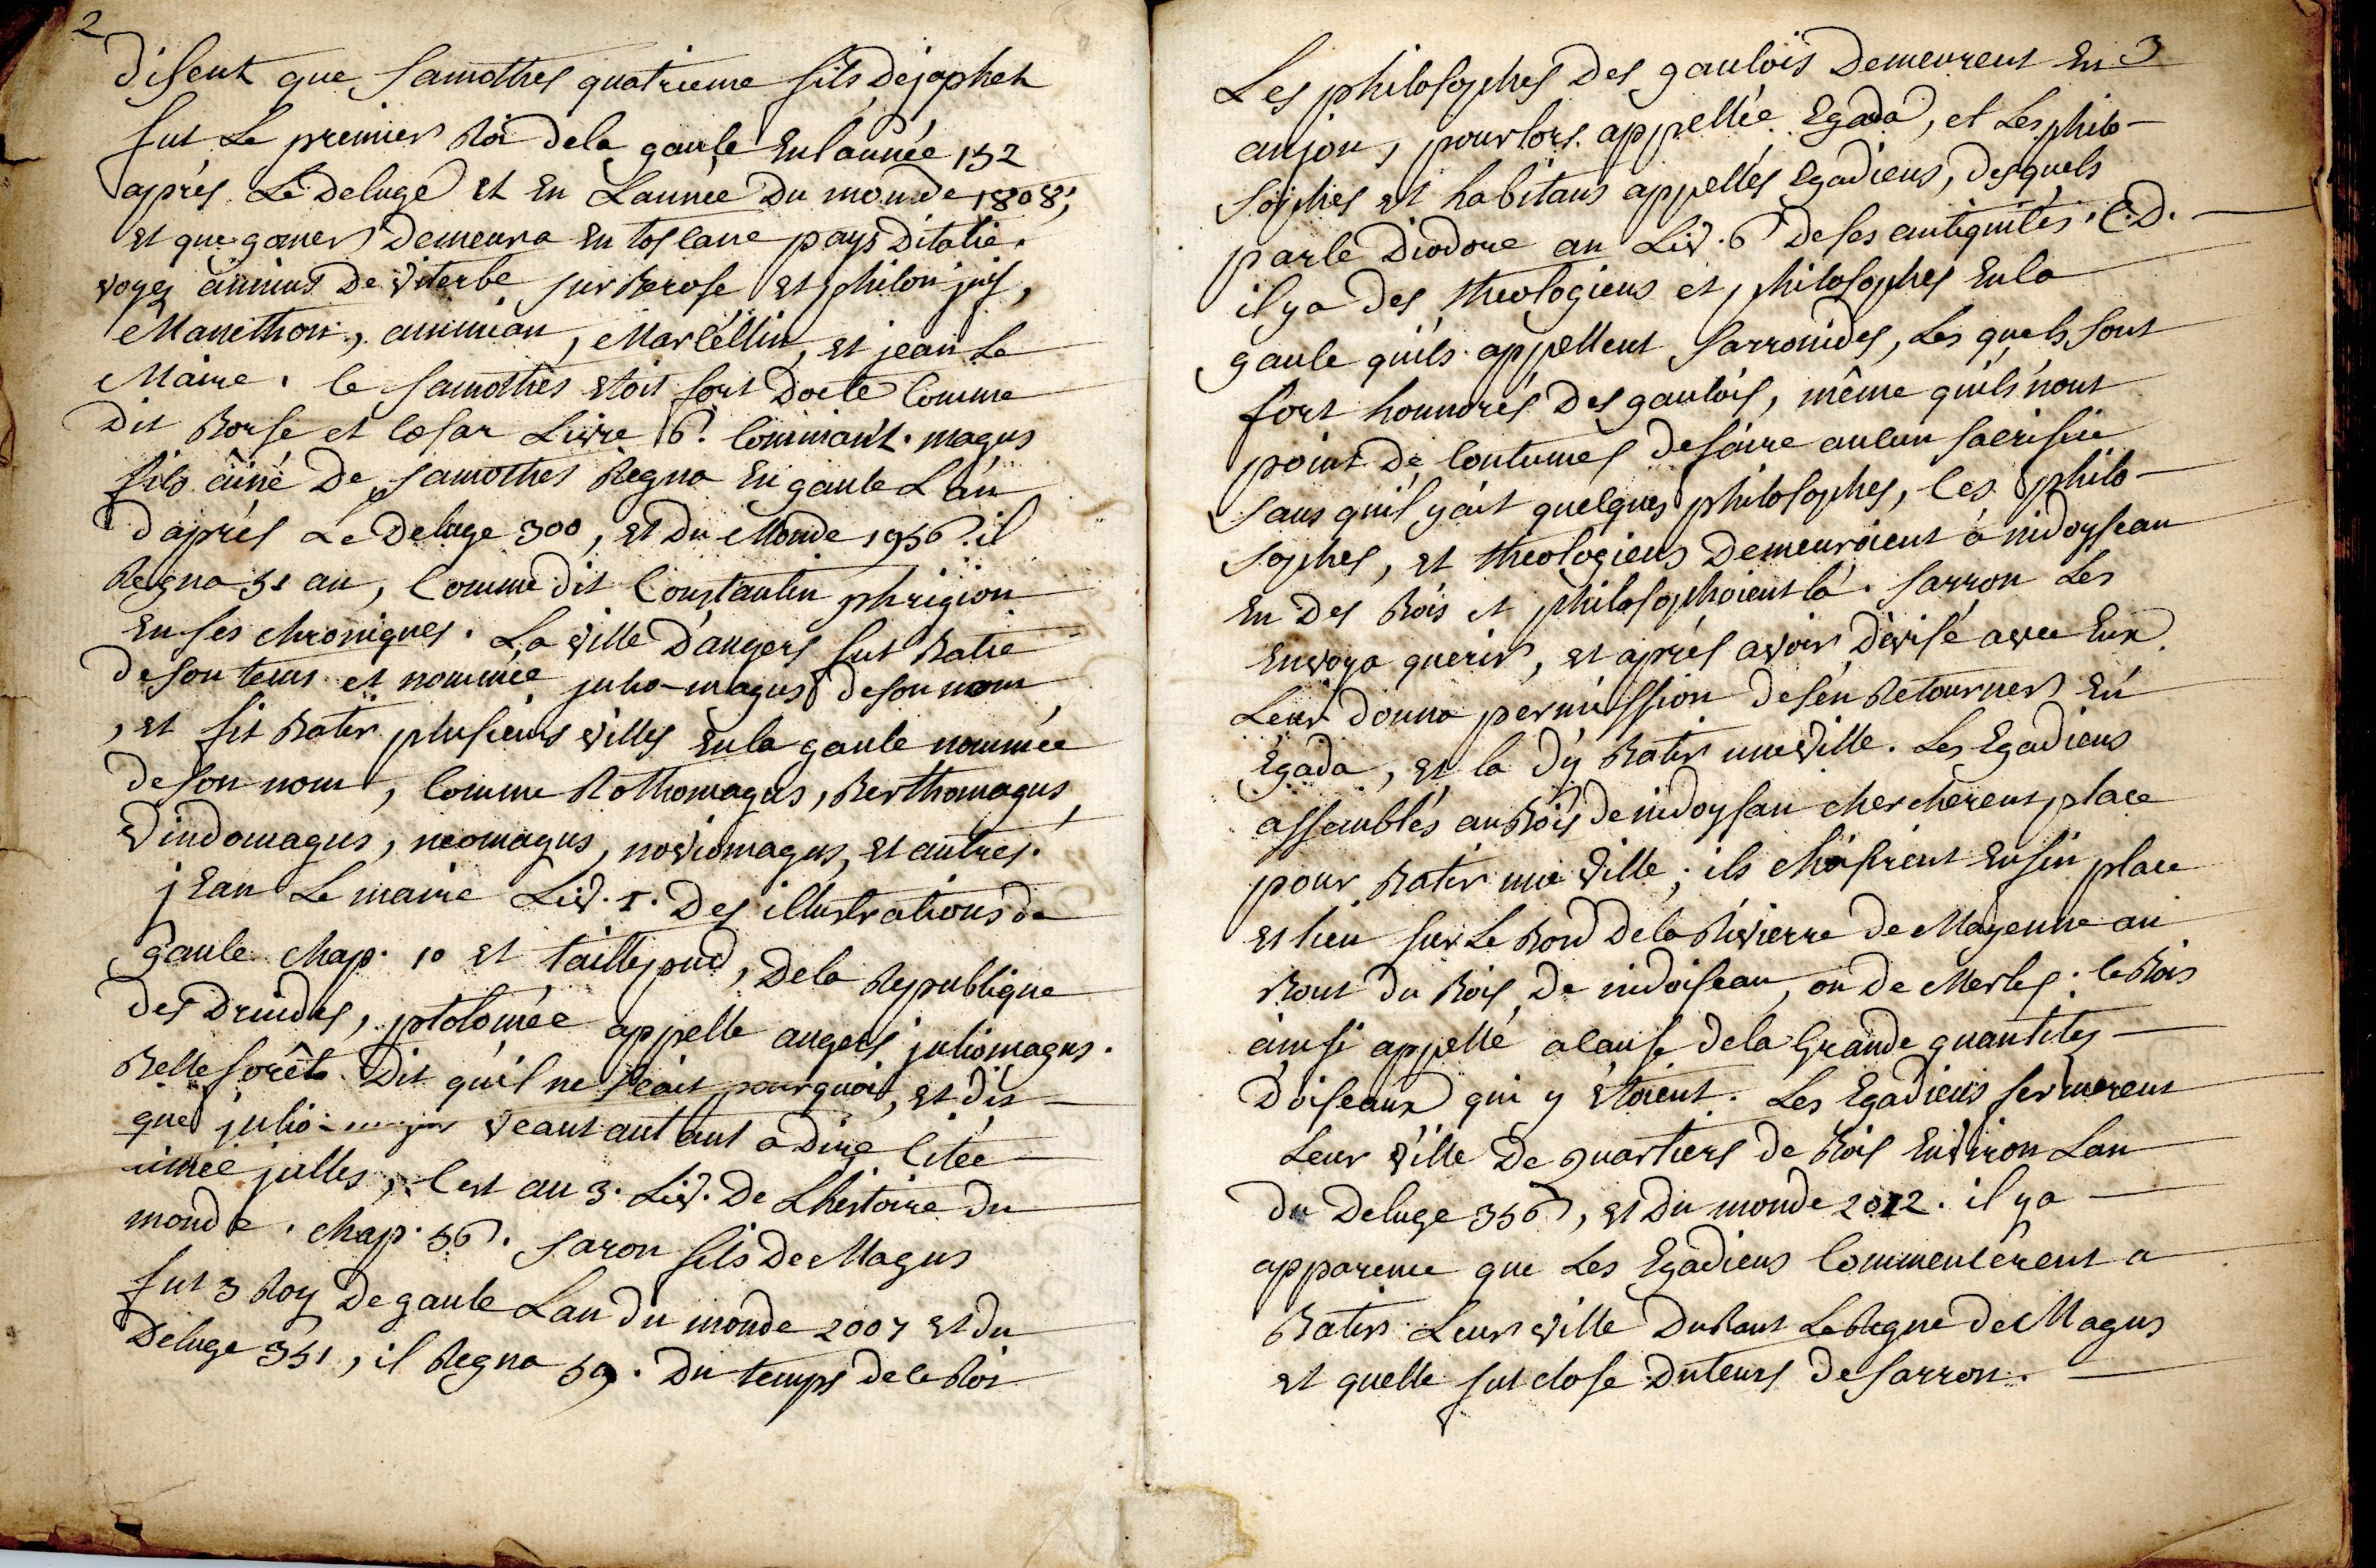 2
disent que Samothes quatrieme fils dejaphet
fut Le premier Roi dela gaule En lannée 152
aprés Le deluge et En Lannée du monde 1808;
et que gomer demeura En toscane pays ditalie.
voyez annius de viterbe sur Berose et philon juif,
Manethon, ammian, Marcéllin, et jean Le
Maire. ce Samothes etoit fort docte comme
dit Borse et Cesar Livre 6. Commant. magus
fils âiné de Samothes Regna En gaule L'an
d'aprés Le deluge 300, et du Monde 1956. il
Regna 51 an, Comme dit Constantin phrigion
En ses chroniques. La ville d'angers fut Batie
de son tems et nommée julio-magus de son nom
, et fit Batir plusieurs villes En la gaule nommée
de son nom, Comme Rothomagus, Berthomagus,
vindomagus, neomagus, noviomagus, et autres.
jean Le maire Liv. 1. des illustrations de
gaule chap. 10 et taillepied, dela Republique
des druides, ptolomée appelle angers juliomagus.
Belleforêts dit qu'il ne sçait pourquoi, et dit
que julio-magus veaut autant a dire Citée
julles, c'est au 3. Liv. de Lhistoire du
monde. chap. 56. Saron fils de Magus
fut 3 Roy de gaule Lan du monde 2007 et du
deluge 351, il Regna 59. du temps de ce Roi
3
Les philosophes des gaulois demeurent En
anjou, pourlors appellée Egada, et Les philo-
sophes et habitans appellés Egadiens, desquels
parle diodore au Liv. 6 de ses antiquités. C.D.
il y a des theologiens et philosophes En la
gaule quils appellent Sarronides, Les quels sont
fort honnorés des gaulois, même quils nont
point de coutumes de faire aucun sacrifice
sans quil y ait quelques philosophes, ces philo-
sophes, et theologiens demeuroient à nidoyseau
En des Bois et philosophoient là. Sarron Les
Envoya querir, et aprés avoir dévisé avec Eux
Leur donna permission de sen Retourner En
Egada, et la d'y Batir une ville. Les Egadiens
assemblés au Bois de nidoysau cherchèrent place
pour Batir une ville; ils choisirent Enfin place
et lieu sur Le Bord dela Rivierre de Mayenne au
Bout du Bois de nidoiseau, ou de Merles. ce Bois
ainsi appellé a cause dela Grande quantités
doiseaux qui y étoient. Les Egadiens fermerent
Leur ville de quartiers de Bois Environ Lan
du deluge 356, et du monde 2012. il y a
apparence que Les Egadiens Commencèrent a
Batir Leur ville durant Le Regne de Magus
et quelle fut close du tems de Sarron.